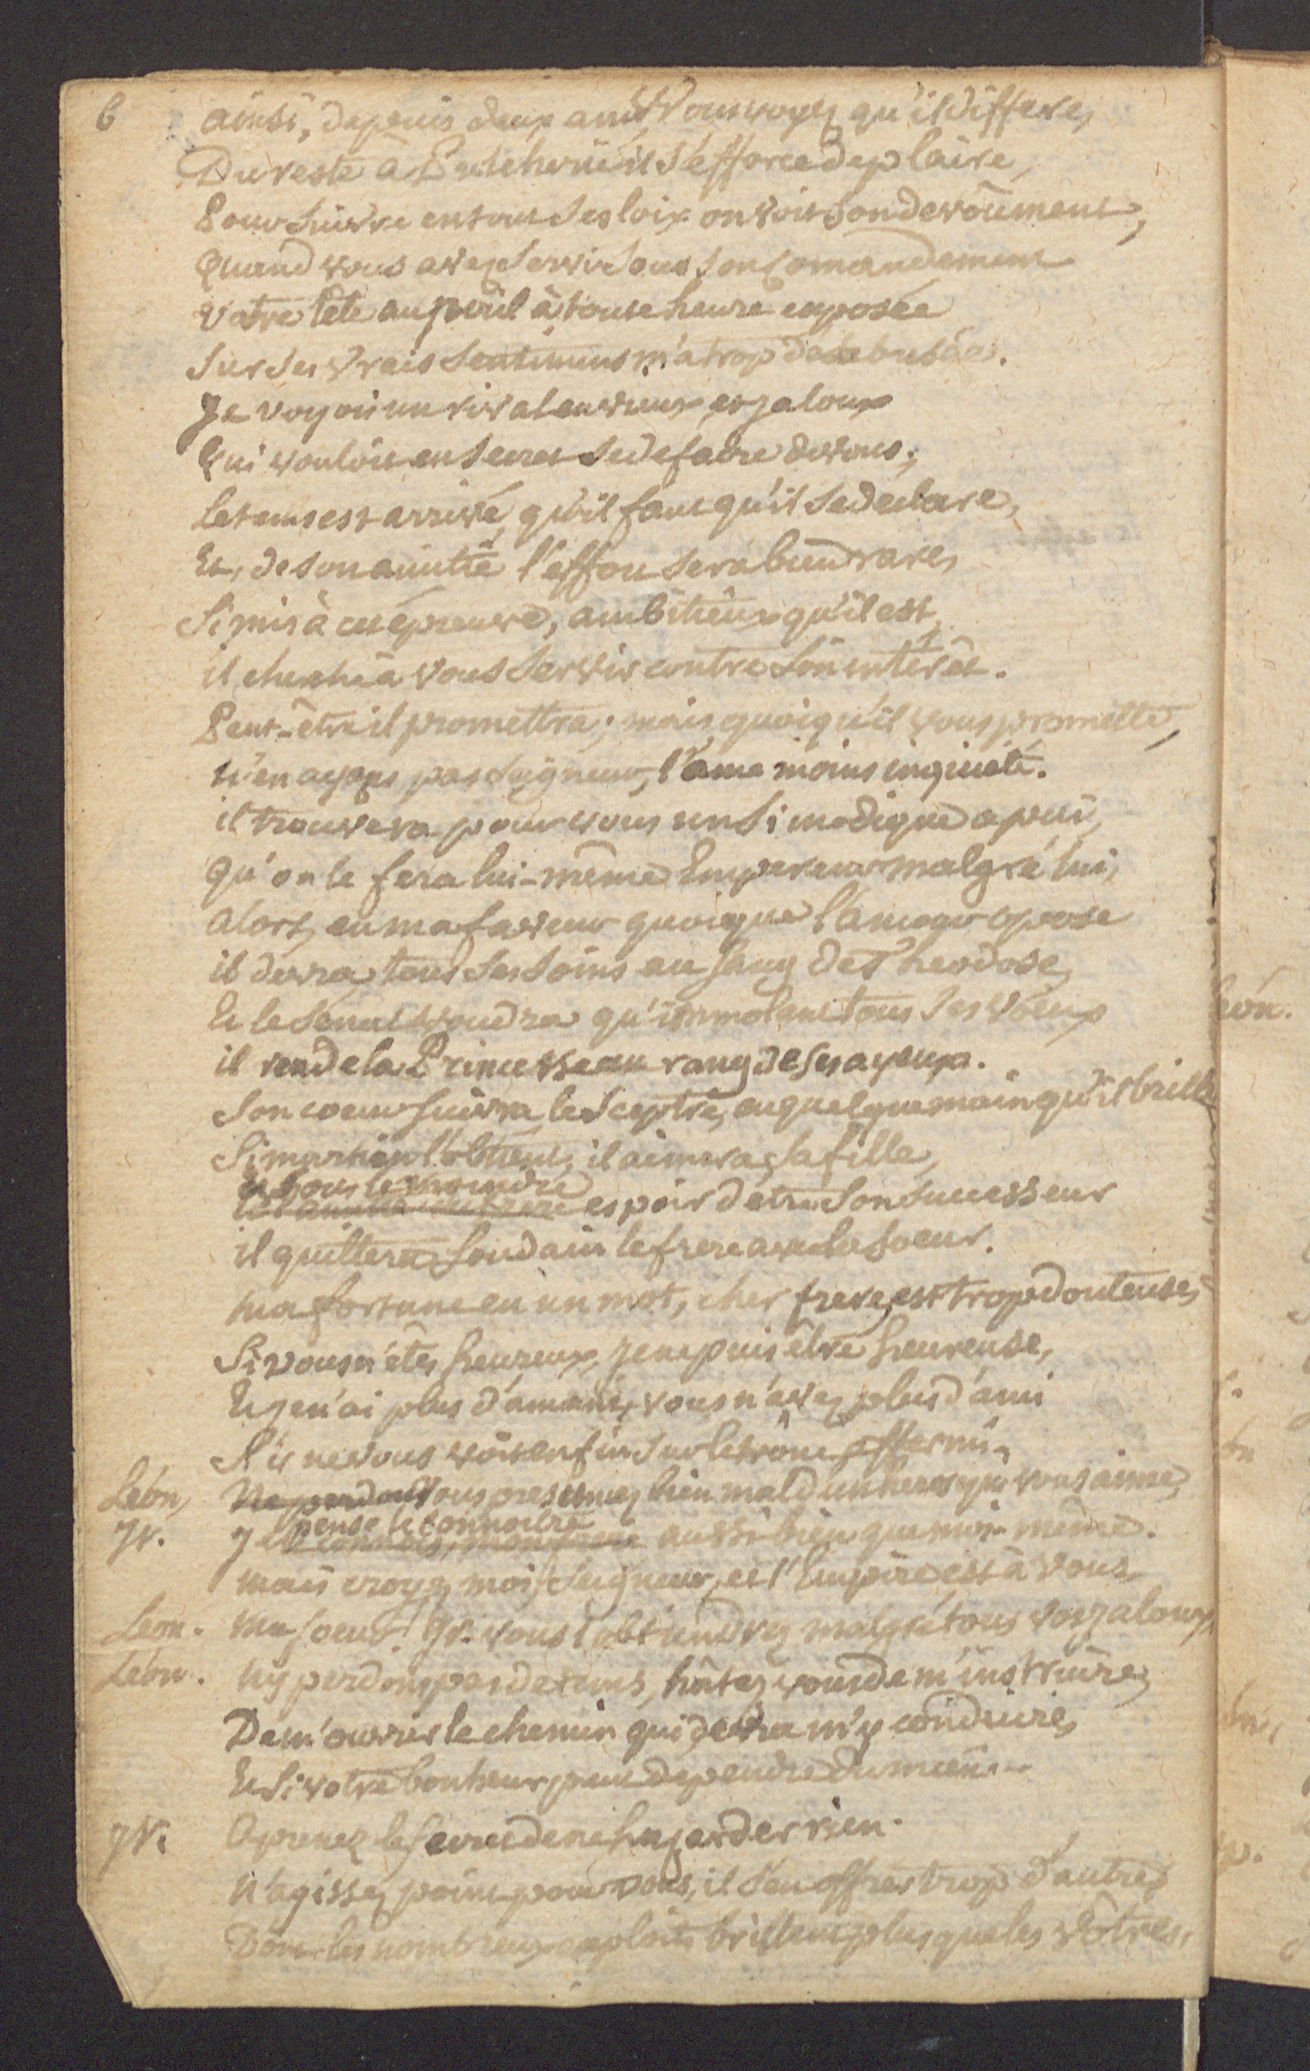 6 ainsi, depuis deux ans Vous voyez qu'il differe,
Du reste à Pulcherie il s'efforce de plaire,
Pour suivre en tout ses loix on voit son devoûment,
Quand vous avez servi sous son comandement
Votre tête au peril à toute heure exposée
Sur ses vrais sentimens m'a trop desabusée.
Je voyois un rival envieux et jaloux
Qui vouloit en secret se defaire de vous;
Le tems est arrivé, qu'il faut qu'il se declare,
Et, de son amitié l'effort sera bien rare,
Si mis à cet épreuve, ambitieux qu'il est,
il cherche à vous servir contre son intérêt.
Peut-être il promettra; mais quoiqu'il vous promette,
N'en ayons pas Seigneur, l'ame moins inquiete.
il trouvera pour vous un si modique apui,
Qu'on le fera lui-même Empereur malgré lui,
Alors, en ma faveur quoique l'amour opose
il devra tous ses soins au sang de Theodose,
Et le Senat voudra qu'immolant tous ses vœux
il rende la Princesse au rang de ses ayeux.
Son coeur suivra le Sceptre, en quelque main qu'il brille
Si martian l'obtient, il aimera sa fille,
et sous le moindre espoir d'etre son successeur
il quittera soudain le frere avec la soeur.
Ma fortune en un mot, cher frere, est trop douteuse,
Si vous n'êtes heureux, je ne puis être heureuse,
Et je n'ai plus d'amant, vous n'avez plus d'ami
S'il ne vous voit enfin sur le trône affermi.
Léon, Vous presumez bien mal d'un heros qui vous aime,
Ir. Je pense le connoitre aussi bien que moi-même.
Mais croyez moi, Seigneur, et l'Empire est à vous
Léon. Ma soeur! Ir. vous l'obtiendrez malgré tous vos jaloux,
Léon. N'y perdons pas de tems, hâtez vous de m'instruire,
De m'ouvrir le chemin qui devra m'y conduire,
Et si votre bonheur peut dependre du mien...
Ir. Aprenez le secret de ne hazarder rien.
N'agissez point pour vous, il s'en offre trop d'autres
Dont les nombreux exploits brillent plus que les vôtres,
Léon.